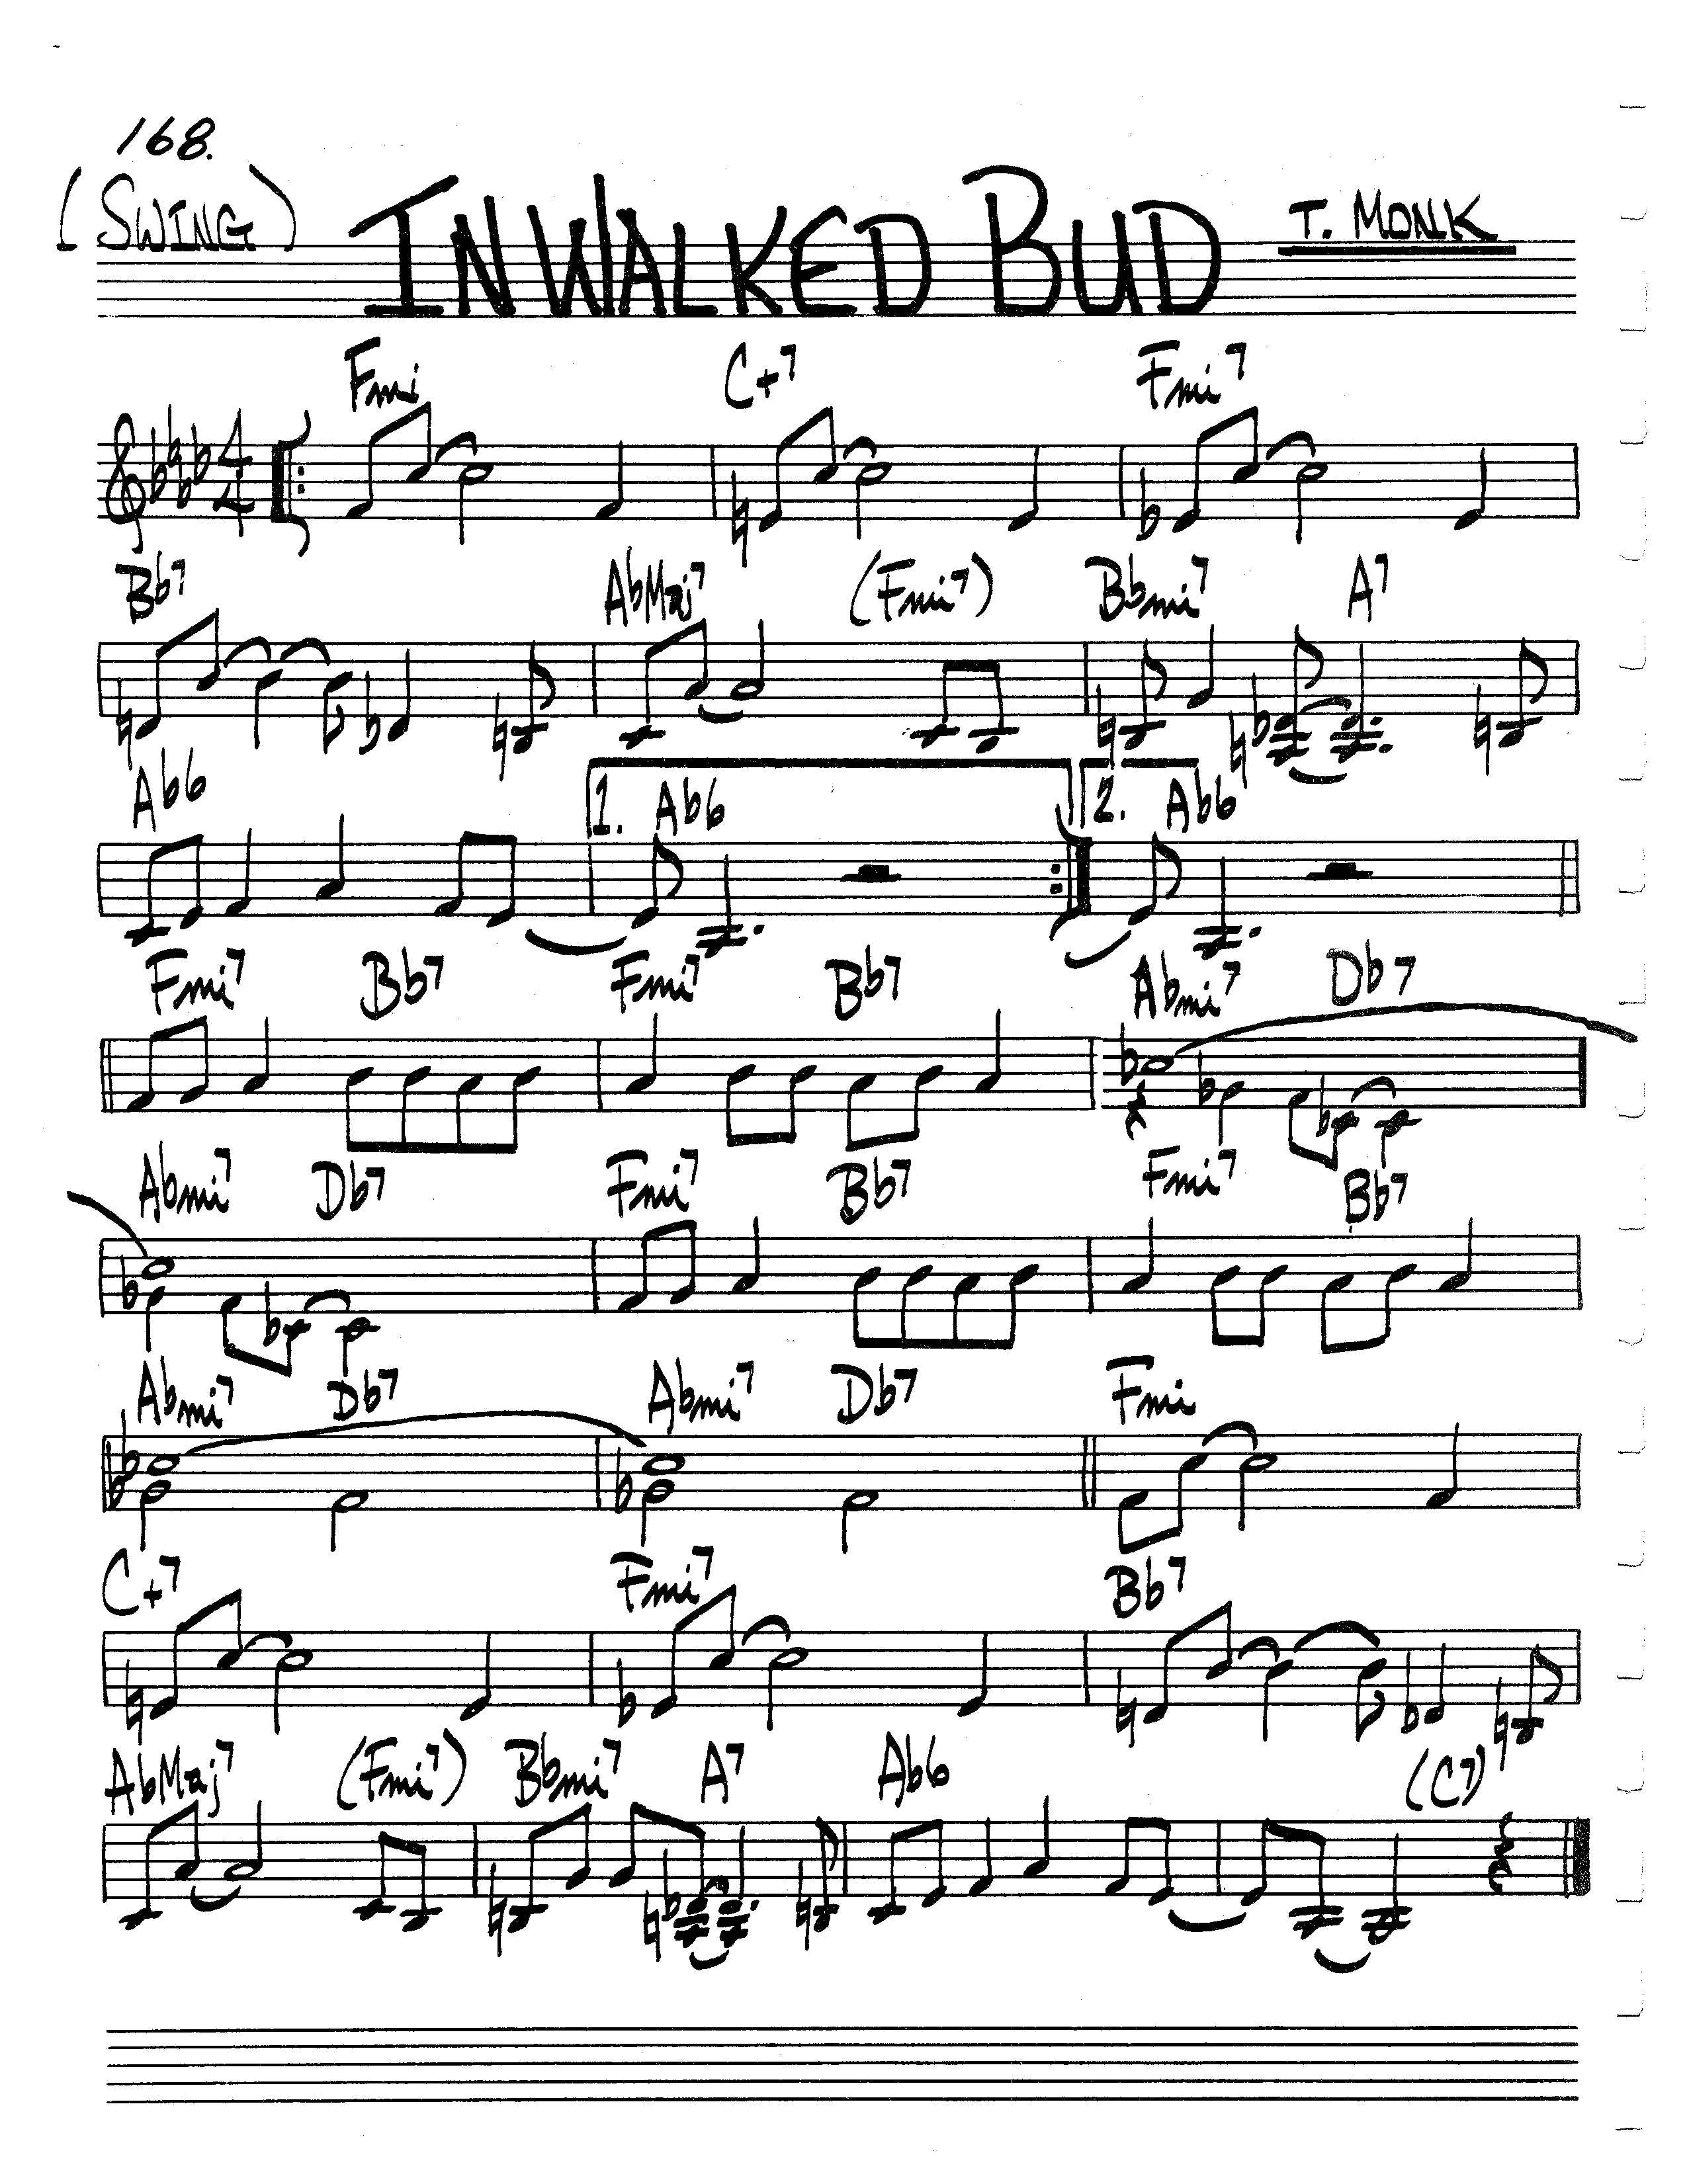 168.
(SWING) IN WALKED BUD T. MONK
Fmi C+7 Fmi7
4
4
Bb7 AbMaj7 (Fmi7) Bbmi7 A7
Ab6 1. Ab6 2. Ab6
Fmi7 Bb7 Fmi7 Bb7 Abmi7 Db7
Abmi7 Db7 Fmi7 Bb7 Fmi7 Bb7
Abmi7 Db7 Abmi7 Db7 Fmi
C+7 Fmi7 Bb7
AbMaj7 (Fmi7) Bbmi7 A7 Ab6 (C7)